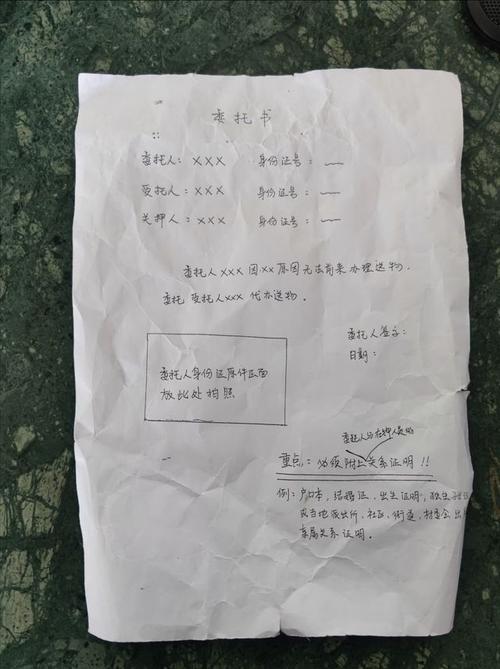 委托书
委托人：XXX 身份证号：
受托人：XXX 身份证号：
关押人：XXX 身份证号：
委托人XXX因XX原因无法前来办理送物，
委托 受托人XXX 代办送物。
委托人签字：
日期：
委托人身份证原件正面
放此处拍照
委托人与在押人员的
重点：必须附上关系证明！！
例：户口本，结婚证，出生证明，独生子
或当地派出所，社区，街道，村委会 出
亲属关系证明。